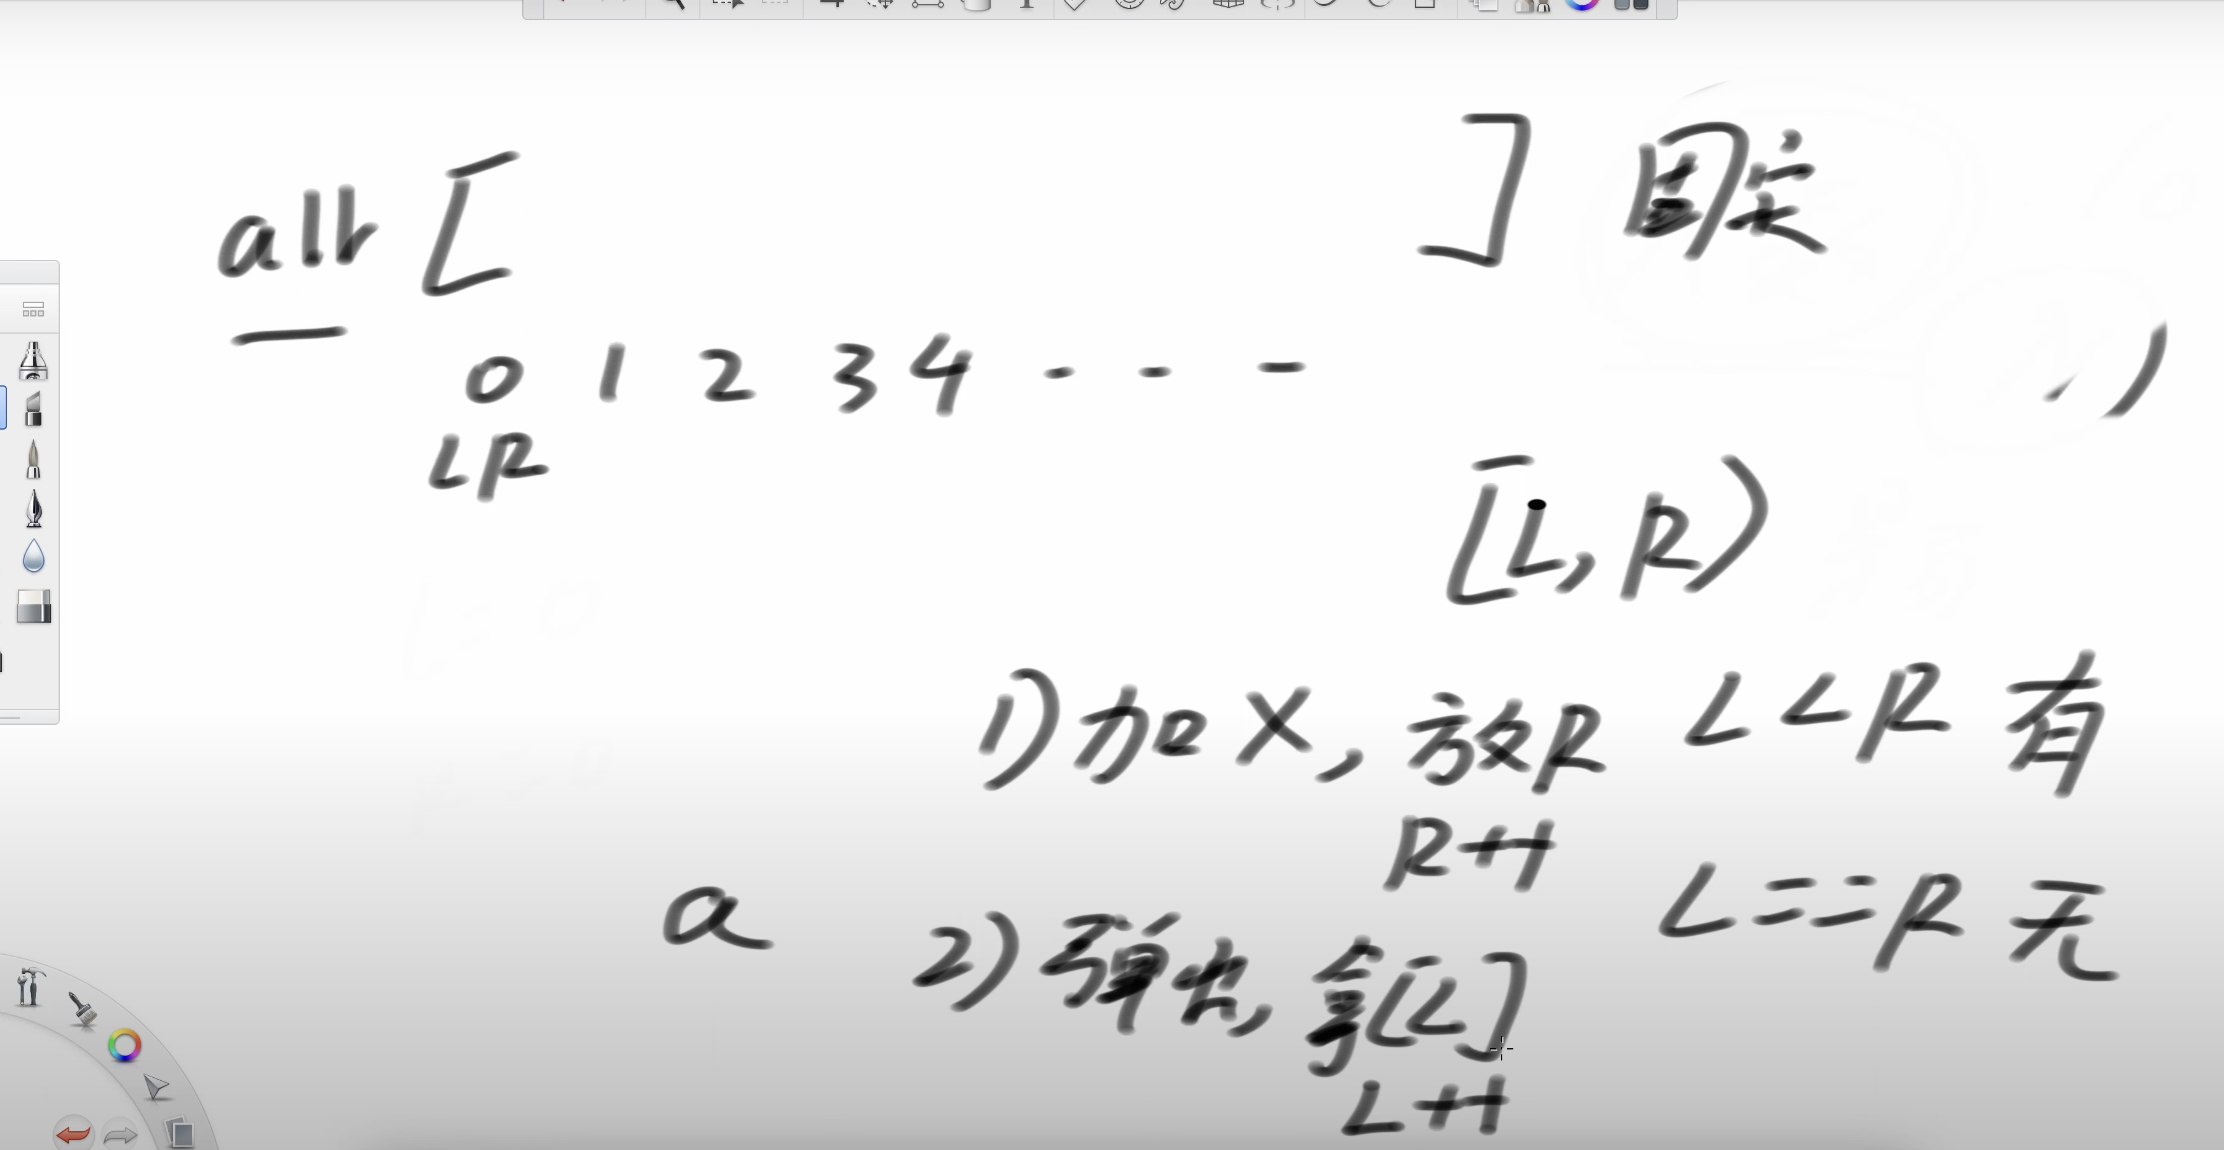 arr [ ] 固定
0 1 2 3 4 . . . -
L R
[L, R)
1) 加X, 放R L<R 有
R++
a L==R 无
2) 弹出, 拿[L]
L++